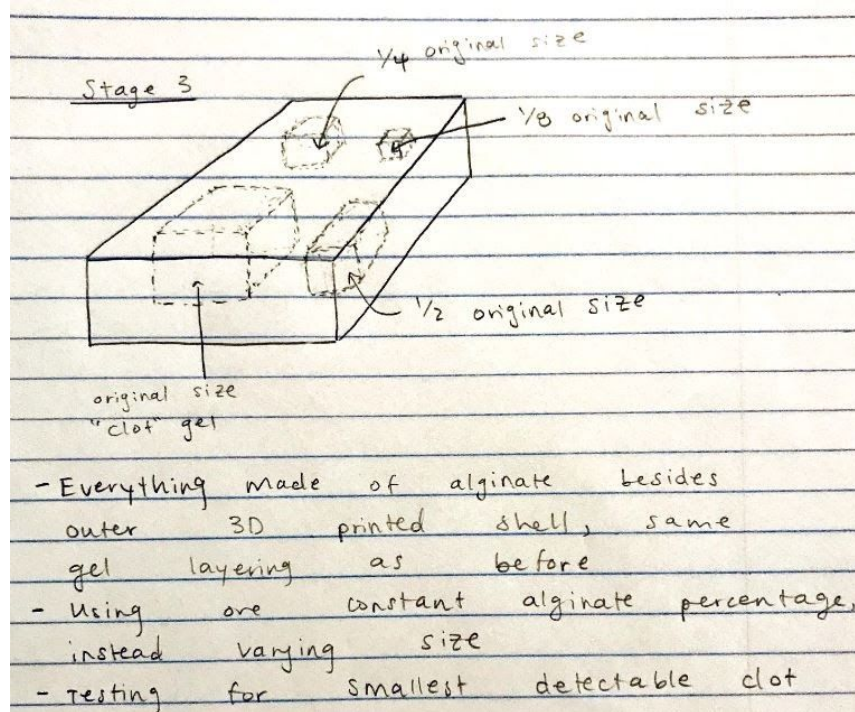 1/4 original size
Stage 3
1/8 original size
1/2 original size
original size
"clot" gel
- Everything made of alginate besides
outer 3D printed shell, same
gel layering as before
- Using one constant alginate percentage,
instead varying size
- Testing for smallest detectable clot